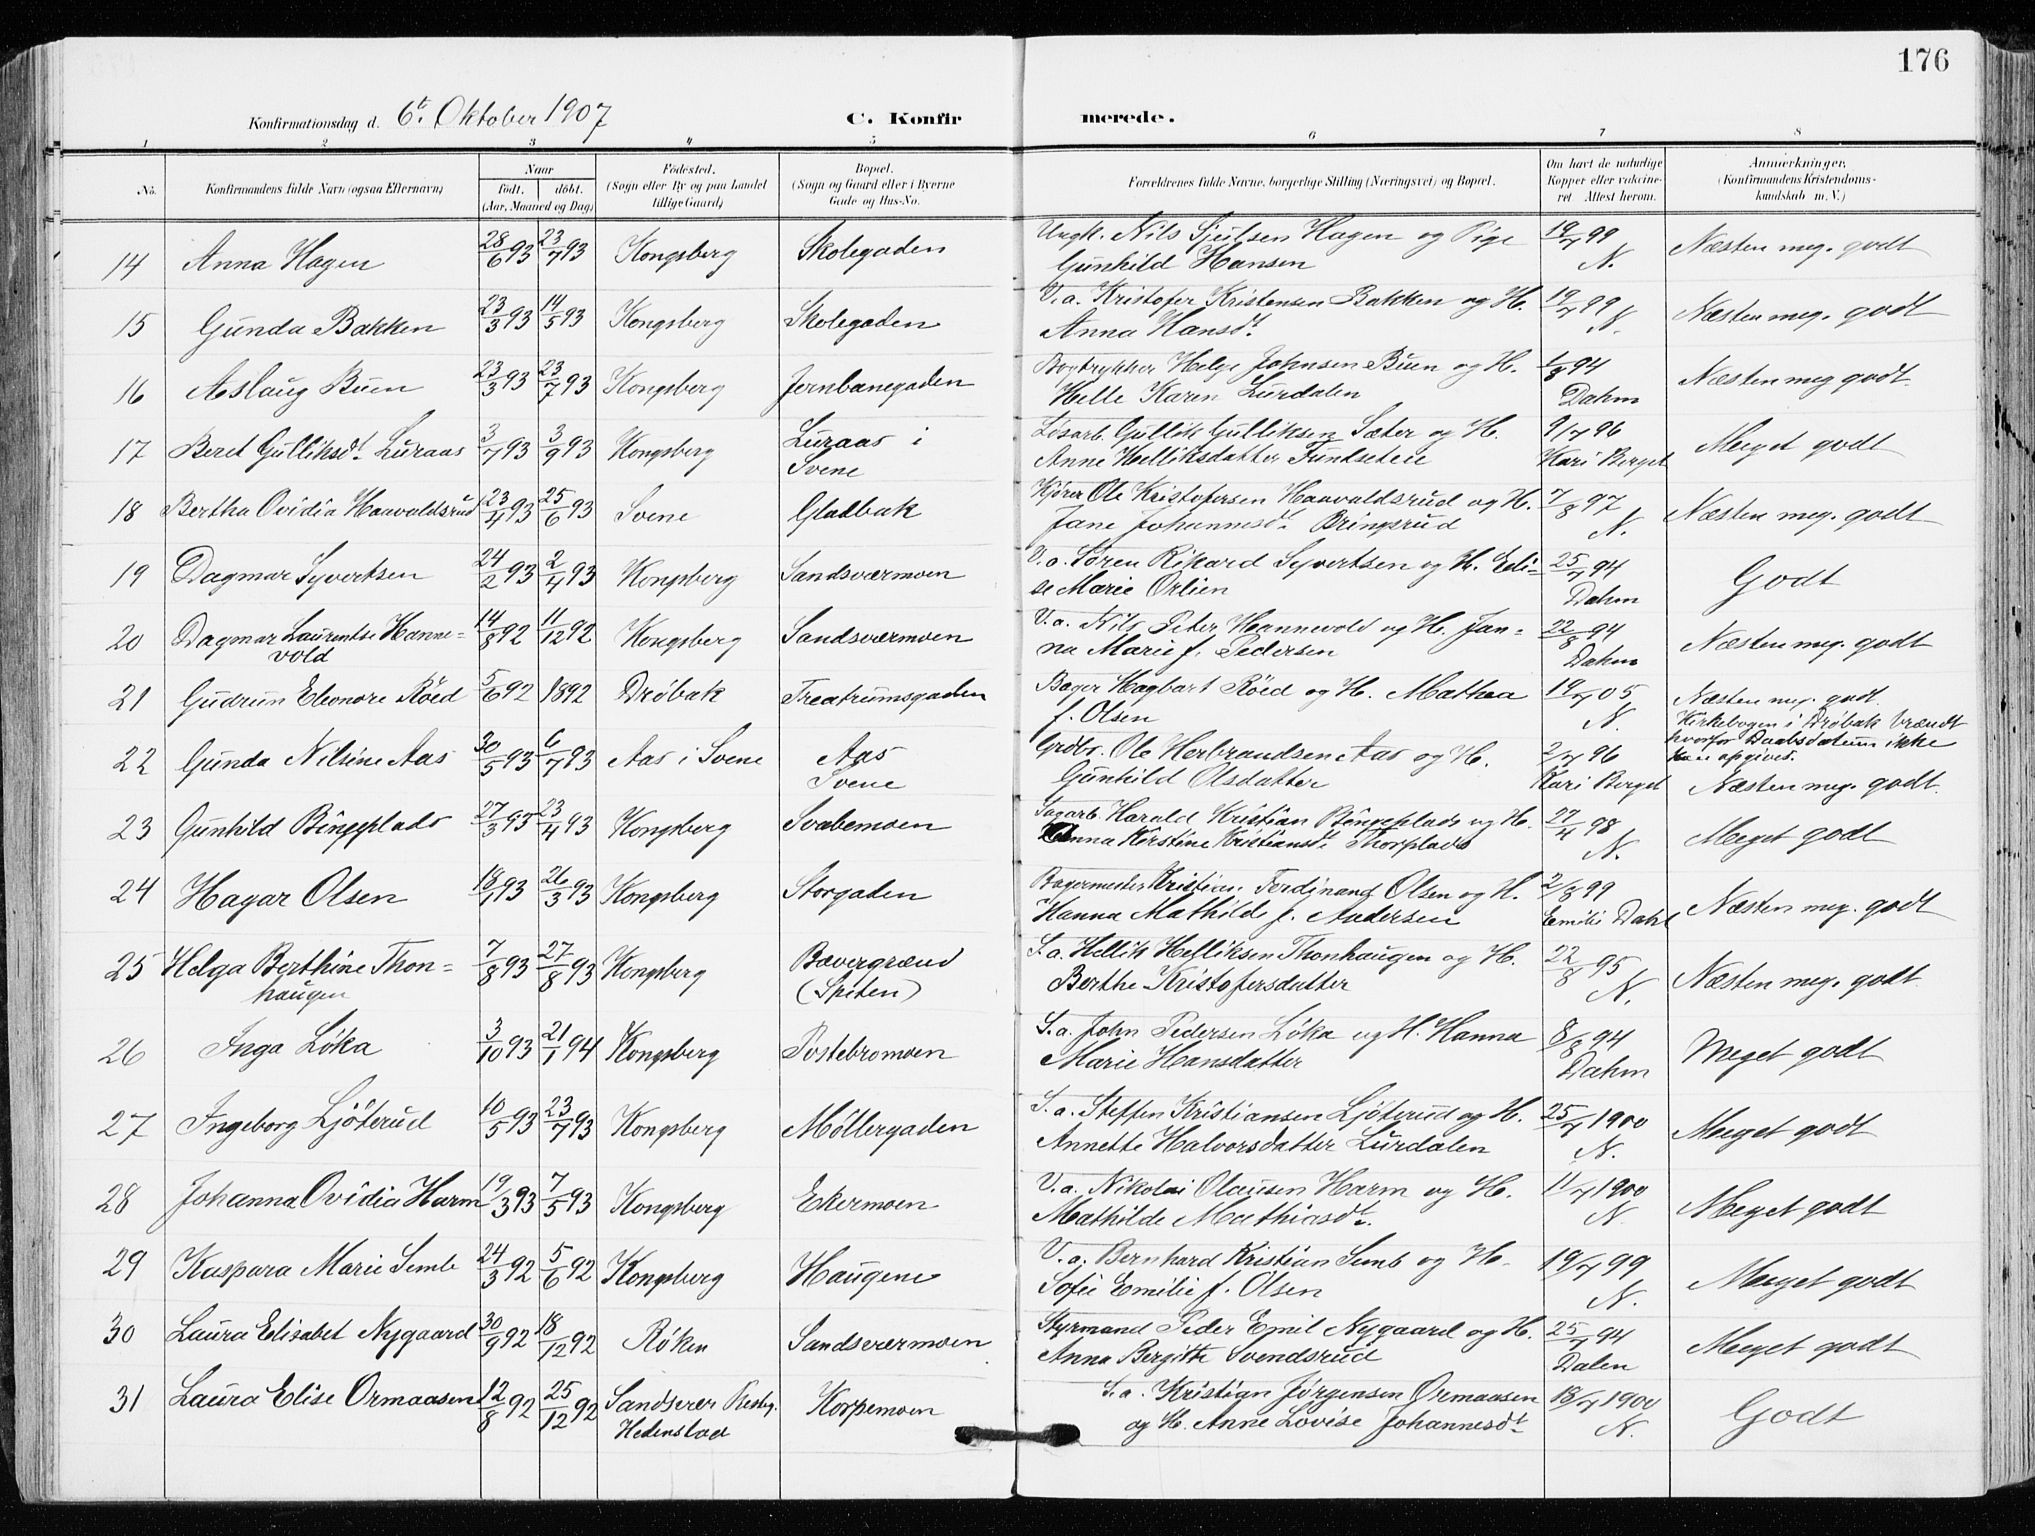 176
Konfirmationsdag d. 6te Oktober 1907 C. Konfirmerede.
1 2 3 4 5 6 7 8
No. Konfirmandens fulde Navn (ogsaa Efternavn) Naar født. døbt. (Aar, Maaned og Dag) Födested. (Sogn eller By og paa Landet tillige Gaard) Bopæl. (Sogn og Gaard eller i Byerne Gade og Hus-No. Forældrenes fulde Navne, borgerlige Stilling (Næringsvei) og Bopæl. Om havt de naturlige Kopper eller vakcineret Attest herom. Anmerkninger. (Konfirmandens Kristendomskundskab m. V.)
14 Anna Hagen 28/6 93 23/7 93 Kongsberg Skolegaden Ungk. Nils Sjulsen Hagen og Pige 19/7 99 Næsten meg. godt
Gunhild Hansen N.
15 Gunda Bakken 23/3 93 14/5 93 Kongsberg Skolegaden V.a. Kristofer Kristensen Bakken og H. 19/7 99 Næsten meg. godt
Anna Hansdt. N.
16 Aslaug Buen 23/3 93 23/7 93 Kongsberg Jernbanegaden Bogtrykker Helge Johnsen Buen og H. 1/8 94 Næsten meg godt.
Helle Karen Lurdalen Dahm
17 Beret Gulliksdt. Luraas 3/7 93 3/9 93 Kongsberg Luraas i Løsarb. Gullik Gulliksen Sæter og H. 9/7 96 Meget godt
Svene Anne Helliksdatter Tundseteie Kari Berget
18 Bertha Ovidia Haavaldsrud 23/4 93 25/6 93 Svene Gladbak Kjører Ole Kristofersen Haavaldsrud og H. 7/8 97 Næsten meg. godt
Jane Johannesdt. Bringsrud N.
19 Dagmar Syvertsen 24/2 93 2/4 93 Kongsberg Sandsværmoen V.a. Søren Rikard Syvertsen og H. Eli- 25/7 94 Godt
se Marie Orlien Dahm
20 Dagmar Laurentse Hanne- 14/8 92 11/12 92 Kongsberg Sandsværmoen V.a. Nils Peter Hannevold og H. Jan- 22/8 94 Næsten meg. godt
vold na Marie f. Pedersen Dahm
21 Gudrun Eleonore Röed 5/6 92 1892 Drøbak Treatrumsgaden Bager Hagbart Röed og H. Mathea 19/7 05 Næsten meg. godt.
f. Olsen N. Kirkebogen i Drøbak brændt
hvorfor Daabsdatum ikke
kan opgives.
22 Gunda Nilsine Aas 30/5 93 6/7 93 Aas i Svene Aas Grdbr. Ole Herbrandsen Aas og H. 2/7 96
Svene Gunhild Olsdatter Kari Berget Næsten meg. godt.
23 Gunhild Bingeplads 27/3 93 23/4 93 Kongsberg Svabemoen Sagarb. Harald Kristian Bingeplads og H. 27/4 98 Meget godt
Anna Kirstine Kristiansdt. Thorplads N.
24 Hagar Olsen 18/1 93 26/3 93 Kongsberg Storgaden Bagermester Kristian Ferdinand Olsen og H. 2/8 99 Næsten meg. godt
Hanna Mathilde f. Andersen Emilie Dahl
25 Helga Berthine Thon- 7/8 93 27/8 93 Kongsberg Bævergrænd S.a. Hellik Helliksen Thonhaugen og H. 22/8 95 Næsten meg. godt.
haugen (Spiten) Berthe Kristofersdatter N.
26 Inga Löka 3/10 93 21/1 94 Kongsberg Postebromoen S.a. John Pedersen Löka og H. Hanna 8/8 94 Meget godt
Marie Hansdatter Dahm
27 Ingeborg Ljöterud 10/5 93 23/7 93 Kongsberg Møllergaden S.a. Steffen Kristiansen Ljöterud og H. 25/7 1900 Meget godt
Annette Halvorsdatter Lurdalen N.
28 Johanna Ovidia Harm 19/3 93 7/5 93 Kongsberg Ekermoen V.a. Nikolai Olausen Harm og H. 11/7 1900 Meget godt
Mathilde Mathiasdt. N.
29 Kaspara Marie Semb 24/3 92 5/6 92 Kongsberg Haugene V.a. Bernhard Kristian Semb og H. 19/7 99 Meget godt
Sofie Emilie f. Olsen N.
30 Laura Elisabet Nygaard 30/9 92 18/12 92 Røken Sandsværmoen Styrmand Peder Emil Nygaard og H. 25/7 94 Meget godt
Anna Bergitte Svendsrud Dalen
31 Laura Elise Ormaasen 12/8 92 25/12 92 Sandsvær Korpemoen S.a. Kristian Jörgensen Ormaasen 18/7 1900 Godt
Hedenstad og H. Anne Lovise Johannesdt. N.